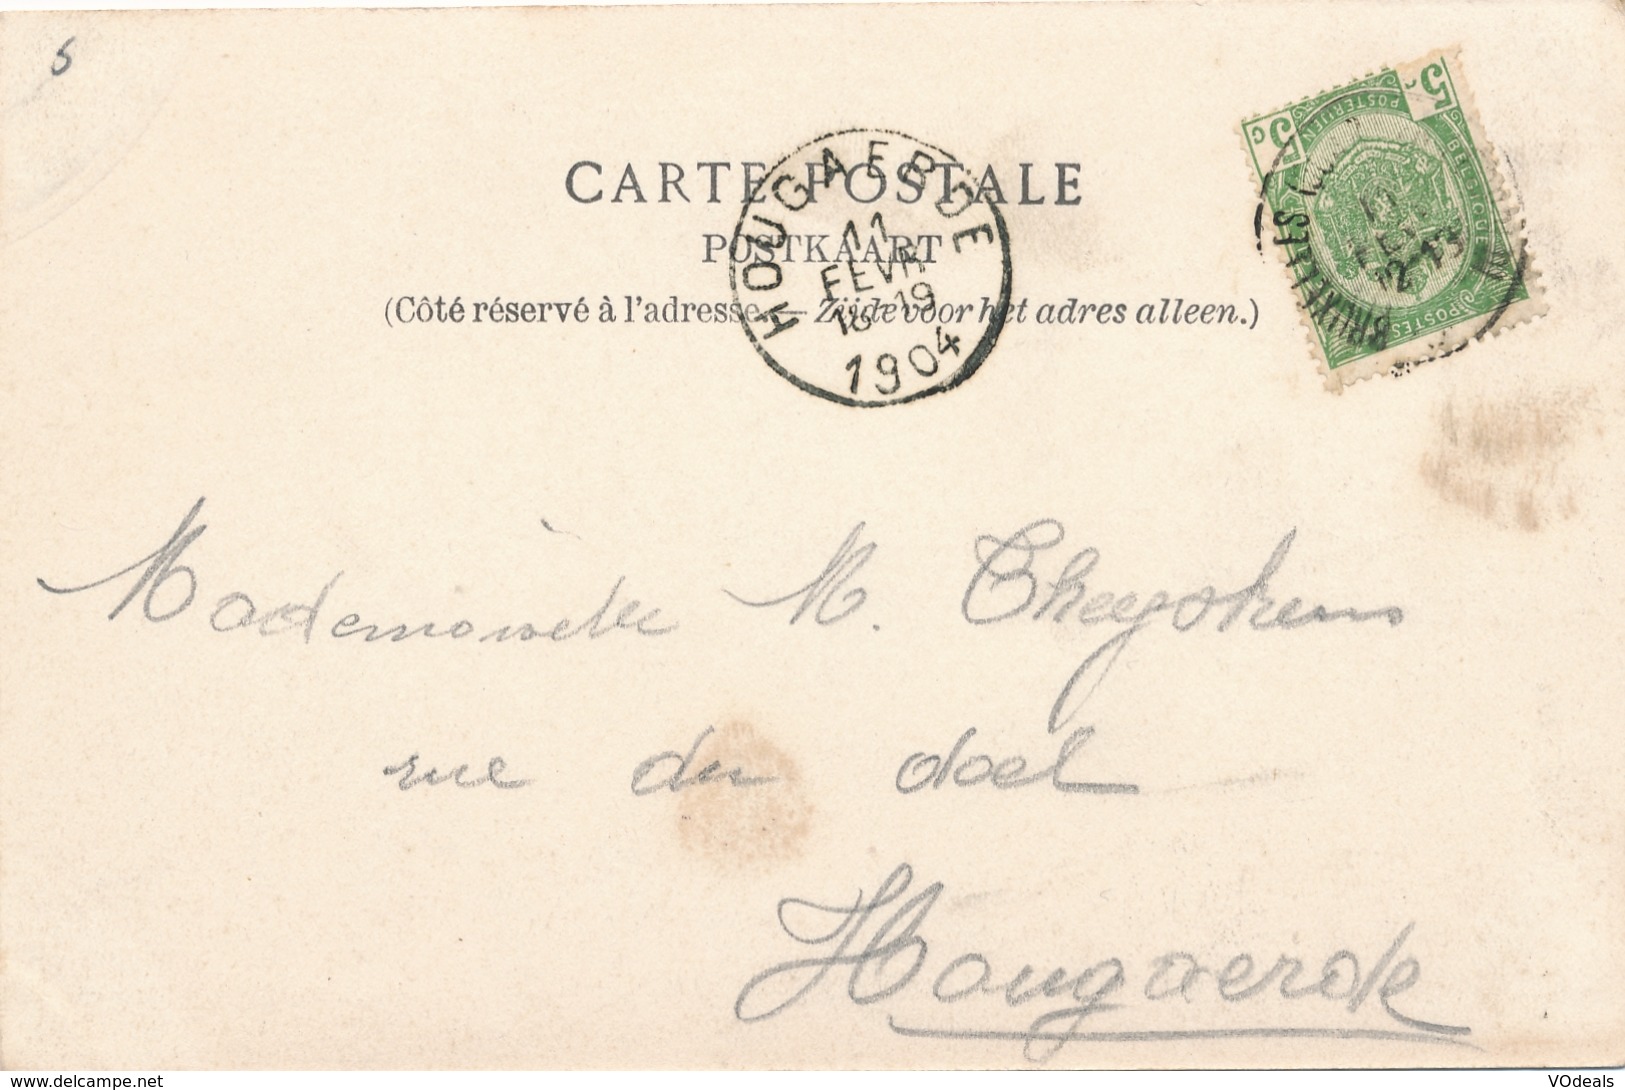 5
CARTE POSTALE
POSTKAART
(Côté réservé à l'adresse. — Zijde voor het adres alleen.)
HOUGAERDE
11
FEVR
18-19
1904
5 c
5 c
POSTERIJEN
BELGIQUE
POSTES
BRUXELLES
11
12-13
Mademoiselle M.
rue du doel
Hougaerde
www.delcampe.net
VOdeals